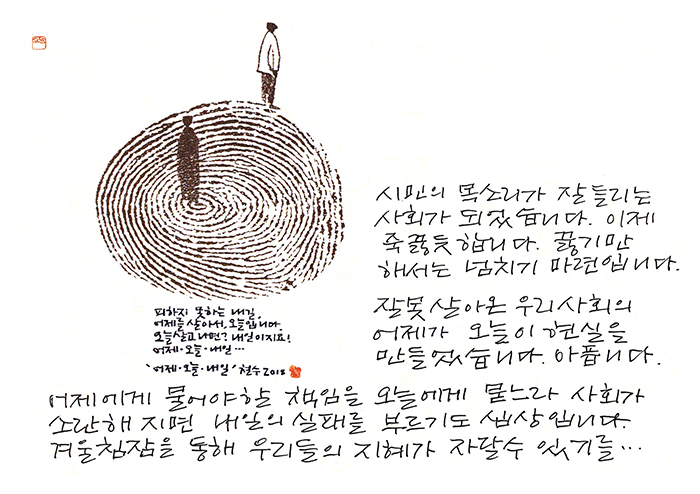 피하지 못하는 내길,
어제를 살아서, 오늘입니다.
오늘살고 나면? 내일이지요!
어제·오늘·내일···
'어제·오늘·내일' 철수 2018
시민의 목소리가 잘 들리는
사회가 되었습니다. 이제
죽 끓듯 합니다. 끓기만
해서는 넘치기 마련입니다.
잘못 살아온 우리사회의
어제가 오늘이 현실을
만들었습니다. 아픕니다.
어제에게 물어야할 책임을 오늘에게 묻느라 사회가
소란해 지면 내일의 실패를 부르기도 십상입니다.
겨울침잠을 통해 우리들의 지혜가 자랄수 있기를···